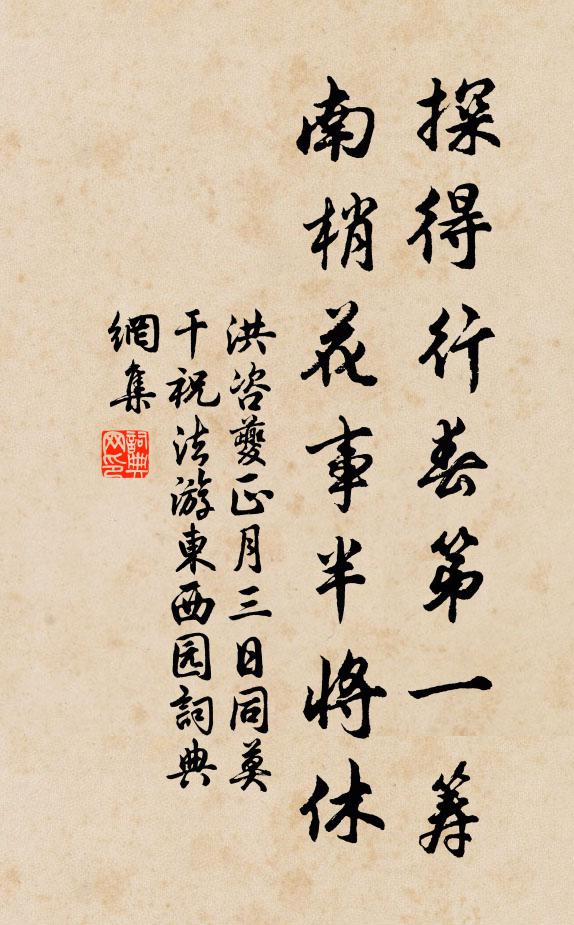 探得行春第一筹
南梢花事半將休
洪咨夔正月三日同莫
干祝法游東西园詞典
網集
詞典网印